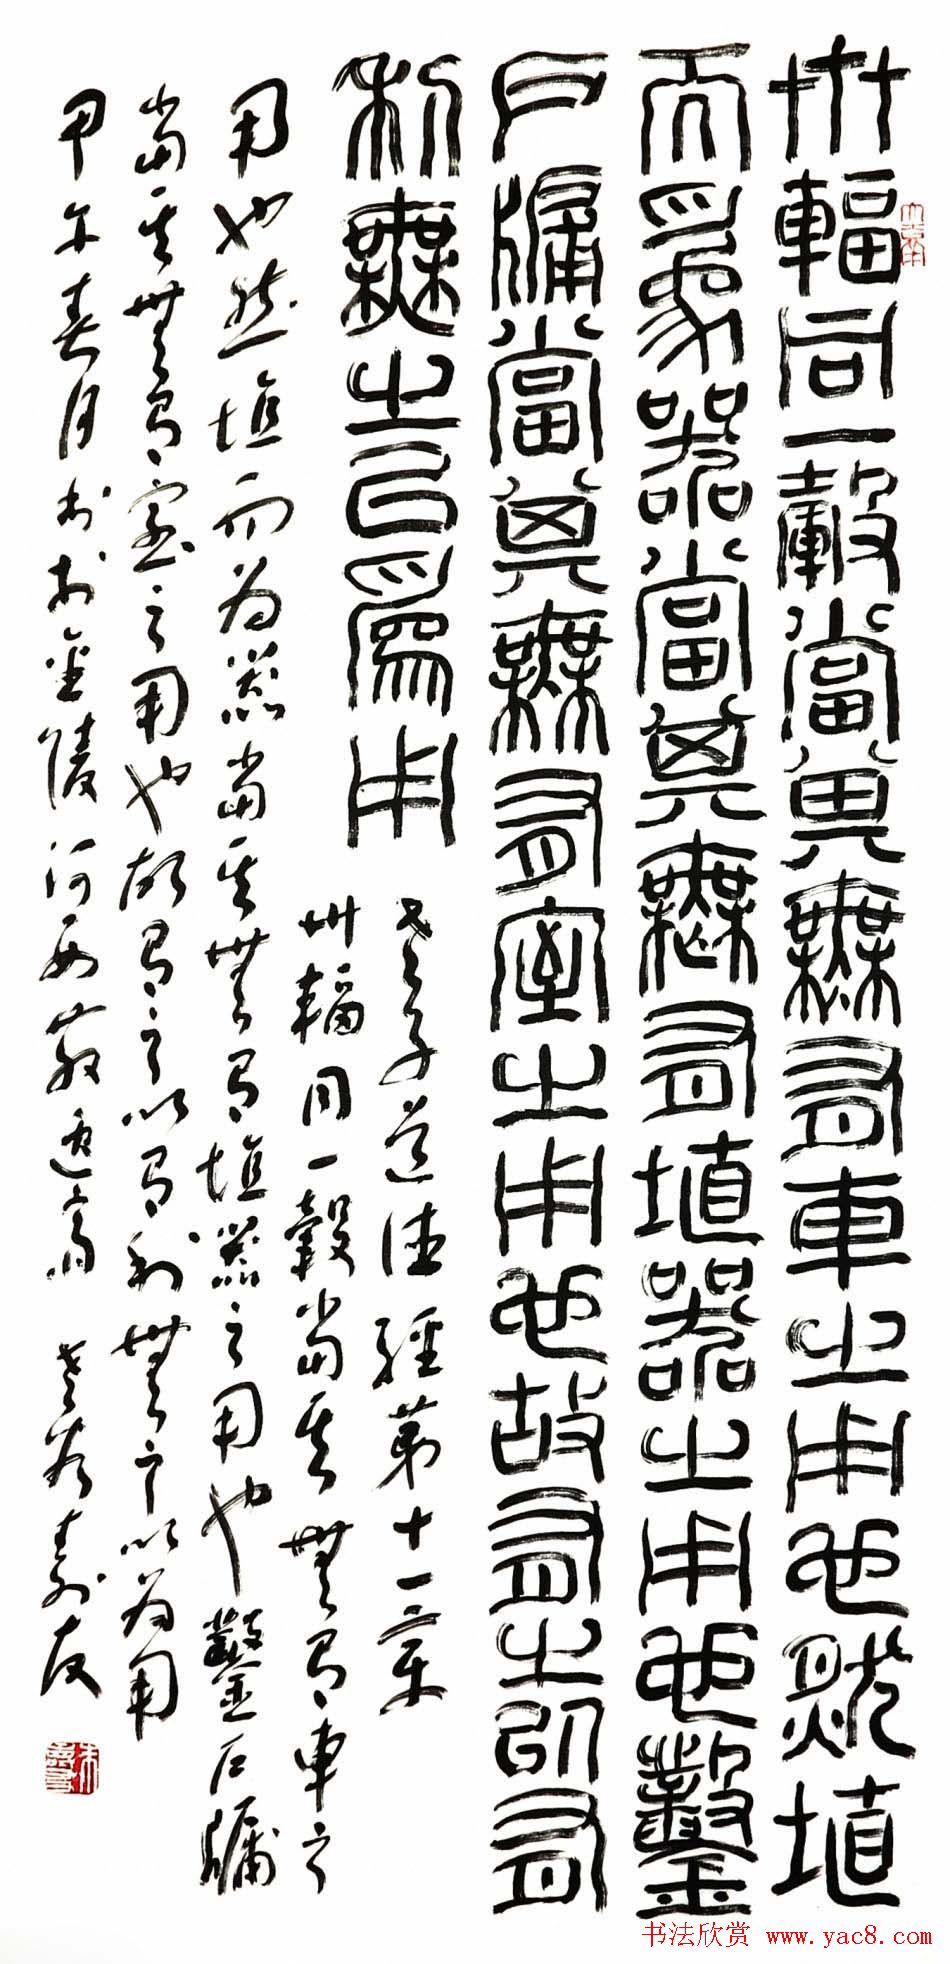 卅輻同一轂當其無有車之用也然埴
而為器當其無有埴器之用也鑿
戶牖當其無有室之用也故有之以有
利無之以為用
老子道德經第十一章
卅輻同一轂當其無有車之
用也然埴而為器當其無有埴器之用也鑿戶牖
當其無有室之用也故有之以有利無之以為用
甲午春月書於金陵河西 壽友
书法欣赏 www.yac8.com